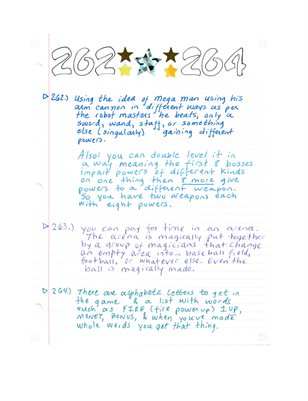 262 264
262.) Using the idea of Mega man using his
arm cannon in different ways as per
the robot masters he beats, only a
sword, wand, staff, or something
else (singularly) gaining different
powers.
Also: you can double level it in
a way meaning the first 8 bosses
impart powers of different kinds
on one thing then 8 more give
powers to a different weapon.
So you have two weapons each
with eight powers.
263.) you can pay for time in an arena.
The arena is magically put together
by a group of magicians that change
an empty area into... baseball field,
football, or whatever else. Even the
ball is magically made.
264) There are alphabetz letters to get in
the game & a list with words
such as FIRE (fire power up) 1UP,
MONEY, BONUS, & when you've made
whole words you get that thing.